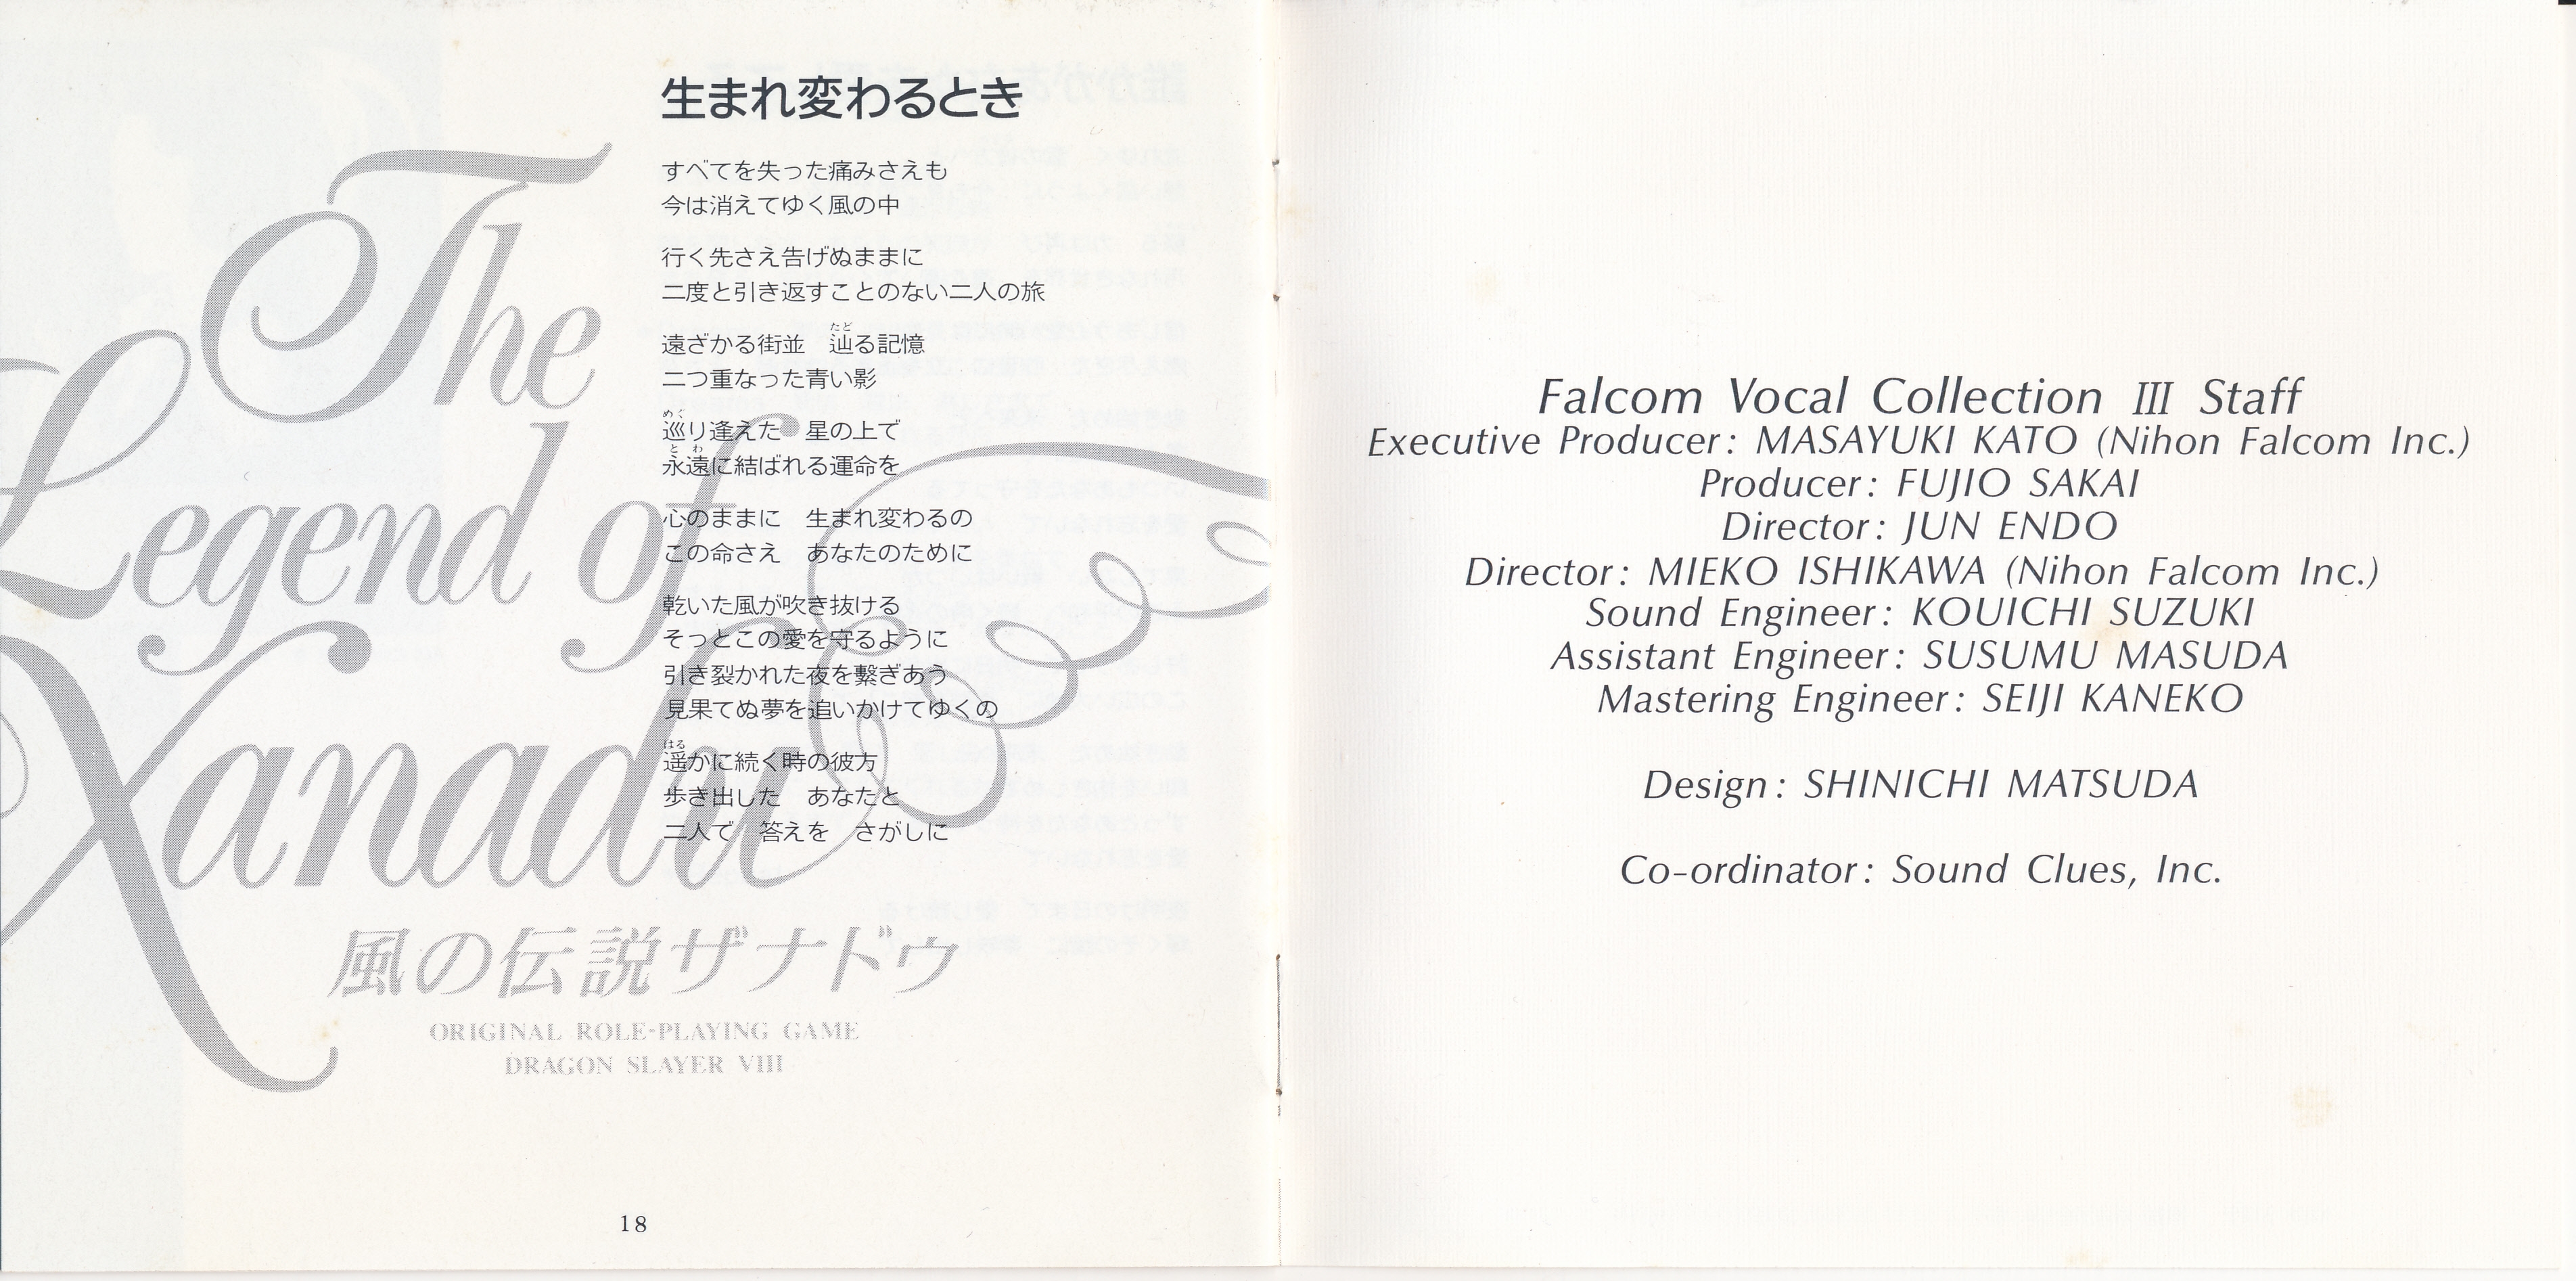 生まれ変わるとき
すべてを失った痛みさえも
今は消えてゆく風の中
行く先さえ告げぬままに
二度と引き返すことのない二人の旅
たど
遠ざかる街並　辿る記憶
二つ重なった青い影
めぐ
巡り逢えた　星の上で
とわ
永遠に結ばれる運命を
心のままに　生まれ変わるの
この命さえ　あなたのために
乾いた風が吹き抜ける
そっとこの愛を守るように
引き裂かれた夜を繋ぎあう
見果てぬ夢を追いかけてゆくの
はる
遥かに続く時の彼方
歩き出した　あなたと
二人で　答えを　さがしに
The
Legend of
Xanadu
風の伝説ザナドゥ
ORIGINAL ROLE-PLAYING GAME
DRAGON SLAYER VIII
18
Falcom Vocal Collection III Staff
Executive Producer: MASAYUKI KATO (Nihon Falcom Inc.)
Producer: FUJIO SAKAI
Director: JUN ENDO
Director: MIEKO ISHIKAWA (Nihon Falcom Inc.)
Sound Engineer: KOUICHI SUZUKI
Assistant Engineer: SUSUMU MASUDA
Mastering Engineer: SEIJI KANEKO
Design: SHINICHI MATSUDA
Co-ordinator: Sound Clues, Inc.